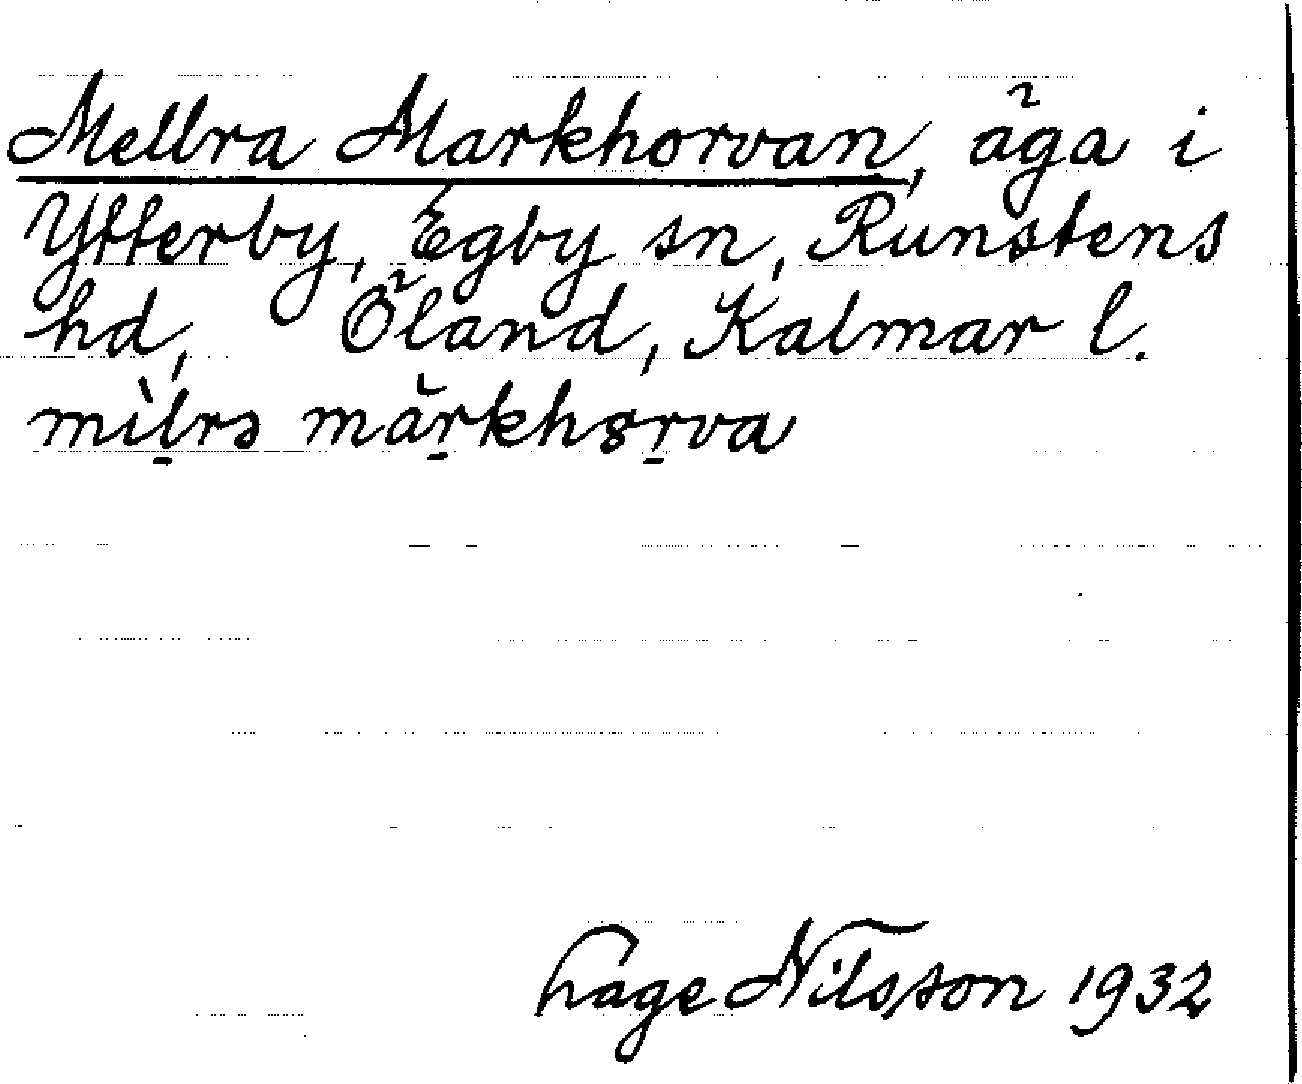 Mellra Markhorvan, äga i
Ytterby, Egby sn, Runstens
hd, Öland, Kalmar l.
mìlrə mărkhørva
Hage Nilsson 1932